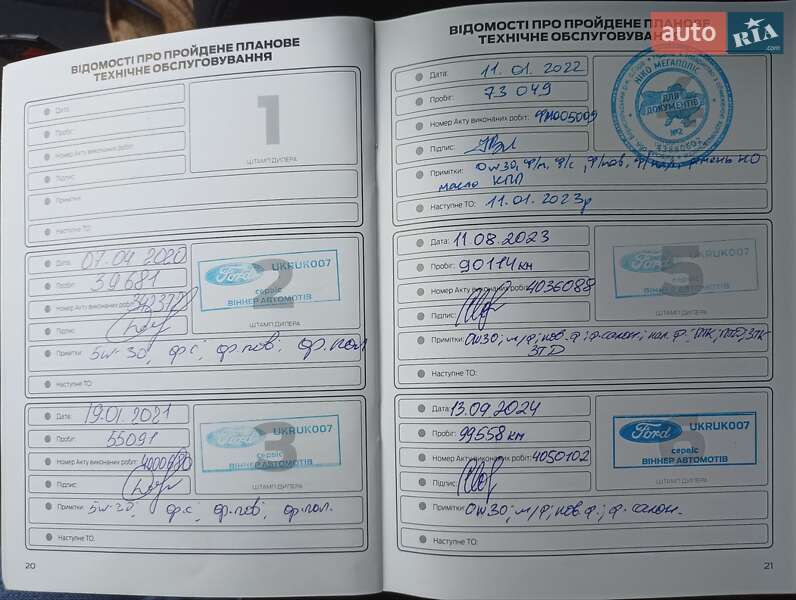 ВІДОМОСТІ ПРО ПРОЙДЕНЕ ПЛАНОВЕ
ТЕХНІЧНЕ ОБСЛУГОВУВАННЯ
Дата:
Пробіг:
Номер Акту виконаних робіт:
Підпис:
Примітки:
Наступне ТО:
1
ШТАМП ДИЛЕРА
Дата: 07.04.2020
Пробіг: 39681
Номер Акту виконаних робіт:
Підпис:
Примітки: 5w-30; ф.с; ф.пов; ф.пал
Наступне ТО:
2
Ford UKRUK007
сервіс
ВІННЕР АВТОМОТІВ
ШТАМП ДИЛЕРА
Дата: 19.01.2021
Пробіг: 55091
Номер Акту виконаних робіт:
Підпис:
Примітки: 5w-30; ф.с; ф.пов; ф.пал.
Наступне ТО:
3
Ford UKRUK007
сервіс
ВІННЕР АВТОМОТІВ
ШТАМП ДИЛЕРА
20
ВІДОМОСТІ ПРО ПРОЙДЕНЕ ПЛАНОВЕ
ТЕХНІЧНЕ ОБСЛУГОВУВАННЯ
auto RIA .com
Дата: 11.01.2022
Пробіг: 73 049
Номер Акту виконаних робіт: ФН005009
Підпис:
Примітки: 0w30, ф/м, ф/с, ф/пов, ф/пал, ремень НО
масло КПП
Наступне ТО: 11.01.2023р
НІКО МЕГАПОЛІС
ДЛЯ
ДОКУМЕНТІВ
№2
Дата: 11.08.2023
Пробіг: 90114 км
Номер Акту виконаних робіт: 4036088
Підпис:
Примітки: 0W30; м/ф; пов.ф; ф.салон; пал.ф.
Наступне ТО:
5
Ford UKRUK007
сервіс
ВІННЕР АВТОМОТІВ
ШТАМП ДИЛЕРА
Дата: 13.09.2024
Пробіг: 99558 км
Номер Акту виконаних робіт: 4050102
Підпис:
Примітки: 0W30; м/ф; пов.ф.; ф.салон.
Наступне ТО:
6
Ford UKRUK007
сервіс
ВІННЕР АВТОМОТІВ
ШТАМП ДИЛЕРА
21